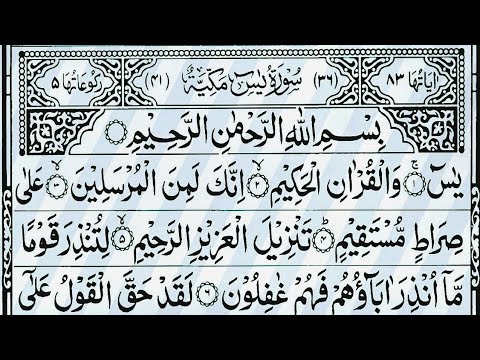 اٰیَاتُهَا ۸۳ (۳۶) سُوْرَةُ یٰسٓ مَكِّیَّةٌ (۴۱) رُكُوْعَاتُهَا ۵
بِسْمِ اللّٰهِ الرَّحْمٰنِ الرَّحِیْمِ ۝
یٰسٓ ۝۱ وَالْقُرْاٰنِ الْحَكِیْمِ ۝۲ اِنَّكَ لَمِنَ الْمُرْسَلِیْنَ ۝۳ عَلٰی
صِرَاطٍ مُّسْتَقِیْمٍ ۝۴ تَنْزِیْلَ الْعَزِیْزِ الرَّحِیْمِ ۝۵ لِتُنْذِرَ قَوْمًا
مَّاۤ اُنْذِرَ اٰبَآؤُهُمْ فَهُمْ غٰفِلُوْنَ ۝۶ لَقَدْ حَقَّ الْقَوْلُ عَلٰۤی